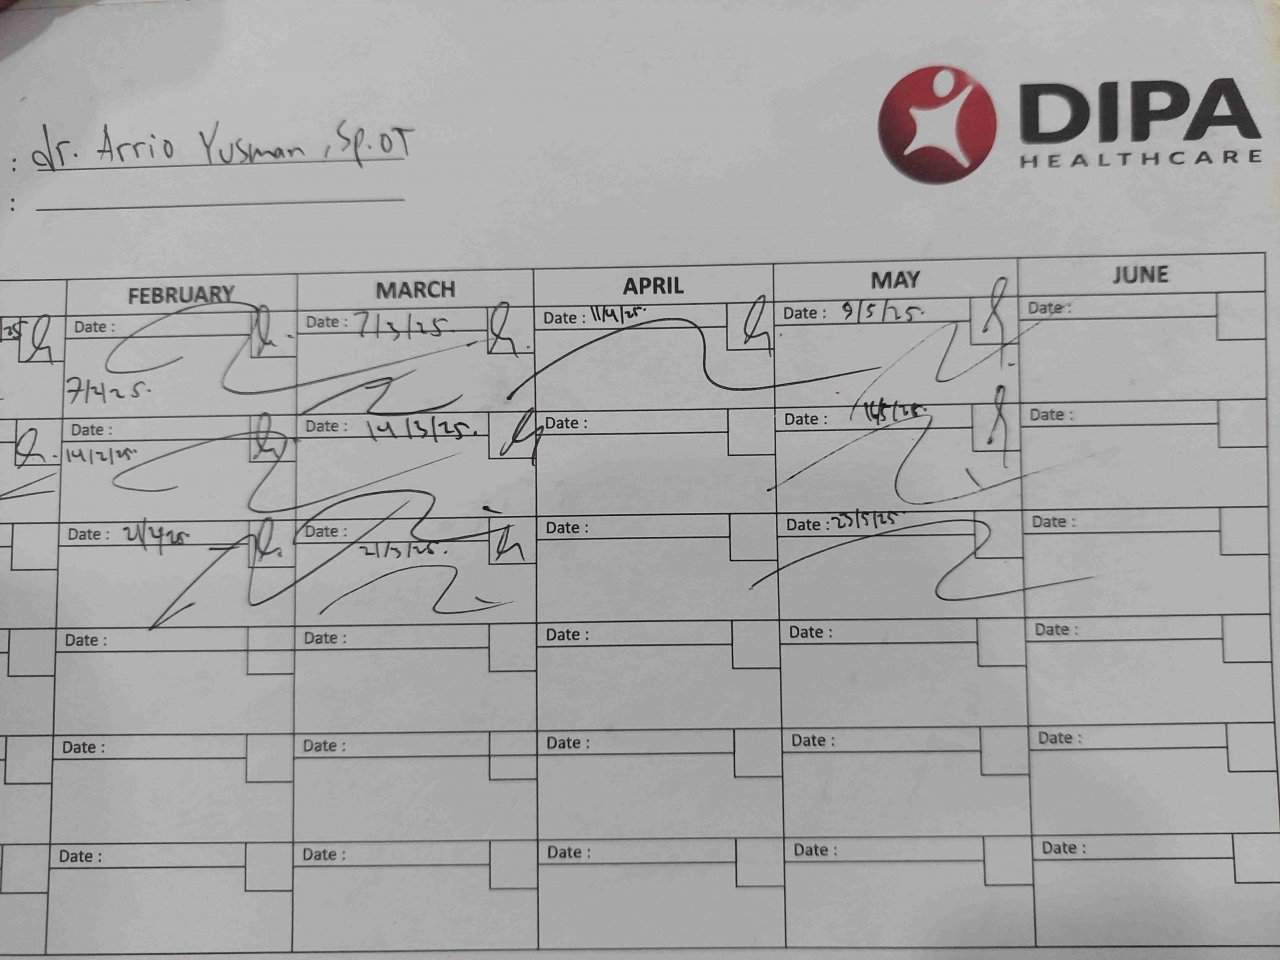 DIPA
HEALTHCARE
: dr. Arrio Yusman, Sp.OT
:
FEBRUARY MARCH APRIL MAY JUNE
25 Date : Date : 7/3/25. Date : 11/4/25. Date : 9/5/25. Date :
7/2/25.
Date : Date : 14/3/25. Date : Date : Date :
14/2/25
Date : 21/2/25 Date : Date : Date : 23/5/25 Date :
21/3/25.
Date : Date : Date : Date : Date :
Date : Date : Date : Date : Date :
Date : Date : Date : Date : Date :